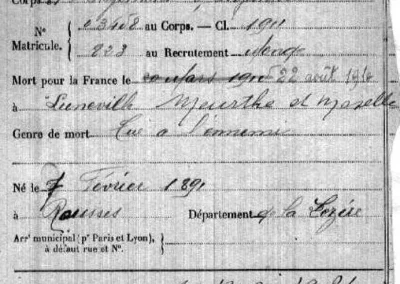 N° Matricule. { 03408 au Corps. — Cl. 1911
823 au Recrutement
Mort pour la France le 22 août 1914
à Luneville Meurthe et Moselle
Genre de mort Tué à l'ennemi
Né le 7 Février 1891
à Rousses Département de la Lozère
Arr<sup>t</sup> municipal (p<sup>r</sup> Paris et Lyon),
à défaut rue et N°.